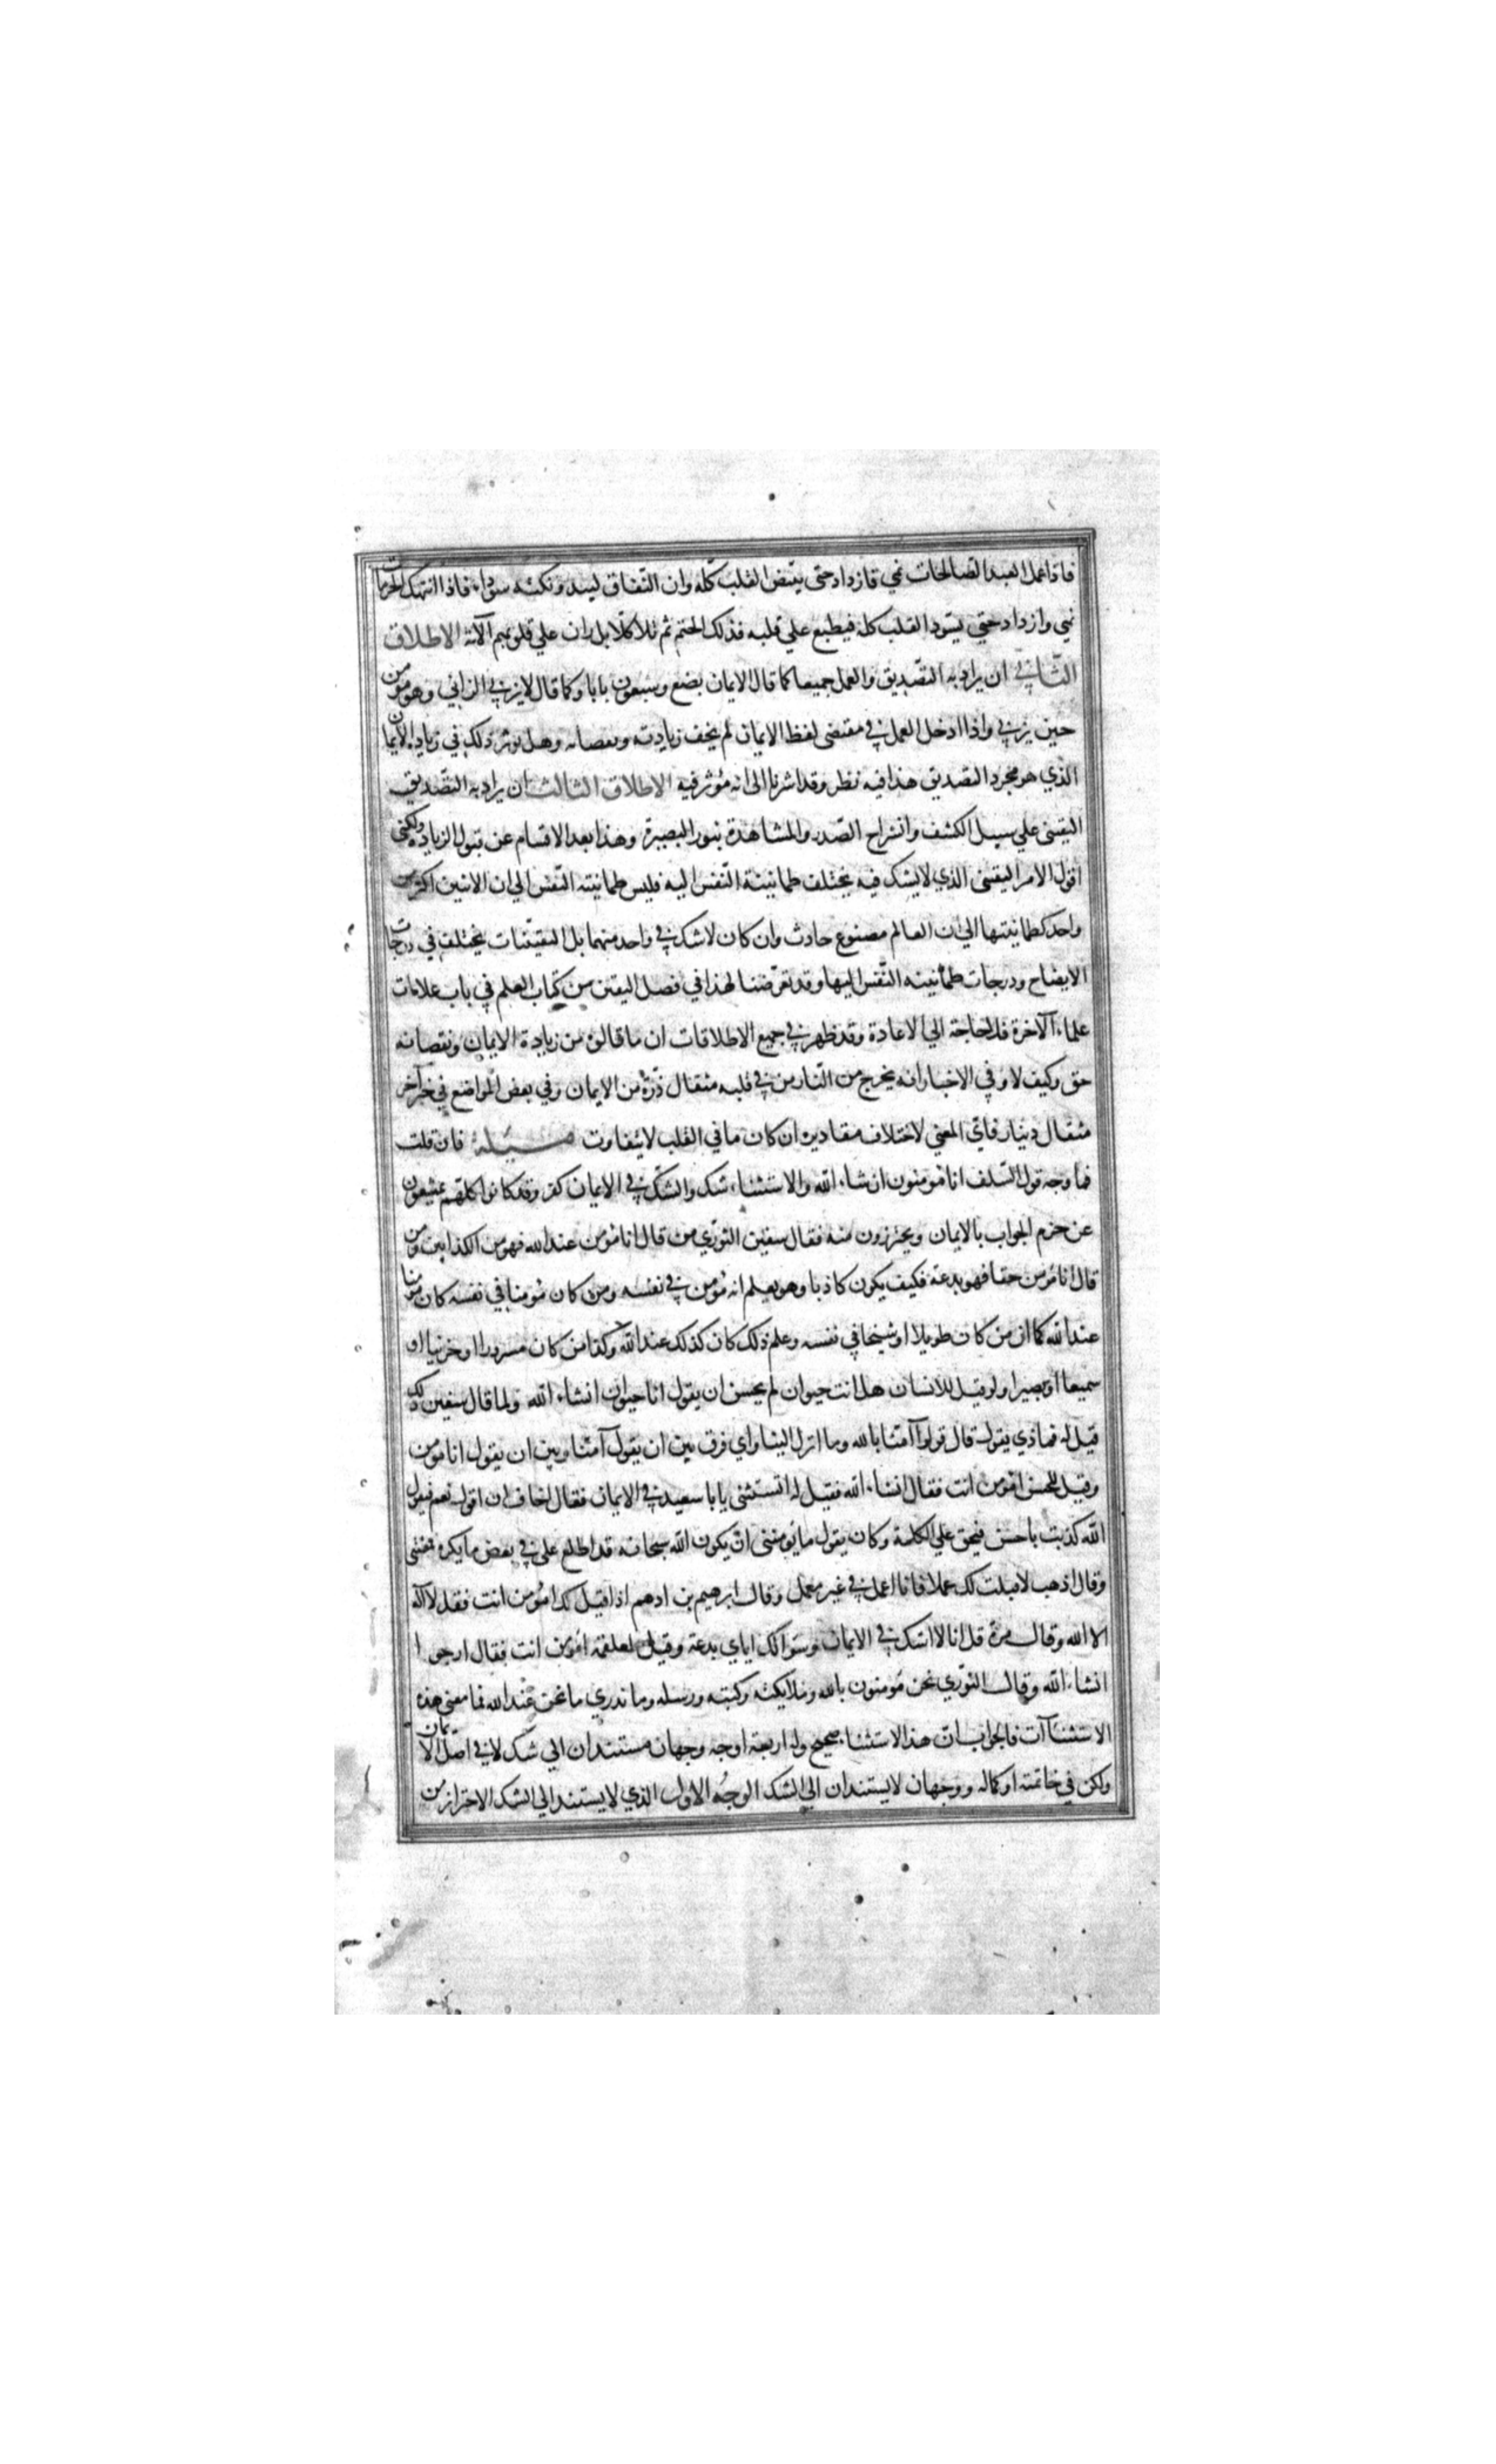 فاذا عمل العبد الصالحات نمي فازداد حتى يبيض القلب كله وان النفاق ليبدو نكتة سوداء فاذا انتهك الحرمات
نمي وازداد حتي يسود القلب كله فيطبع علي قلبه فذلك الختم ثم تلا كلا بل ران علي قلوبهم الآية الاطلاق
الثاني ان يراد به التصديق والعمل جميعا كما قال الايمان بضع وسبعون بابا وكما قال لا يزني الزاني وهو مومن
حين يزني واذا ادخل العمل في مقتضى لفظ الايمان لم يخف زيادته ونقصانه وهل يوثر ذلك في زيادة الايمان
الذي هو مجرد التصديق هذا فيه نظر وقد اشرنا الى انه مؤثر فيه الاطلاق الثالث ان يراد به التصديق
اليقيني علي سبيل الكشف وانشراح الصدر والمشاهدة بنور البصيرة وهذا بعد الاقسام عن قبول الزيادة ولكني
اقول الامر اليقيني الذي لا يشك فيه يختلف طمانينة النفس اليه فليس طمانينة النفس الي ان الاثنين اكثر من
واحد كطمانينتها الي ان العالم مصنوع حادث وان كان لا شك في واحد منهما بل اليقينيات يختلف في درجات
الايضاح ودرجات طمأنينة النفس اليها وقد تعرضنا لهذا في فصل اليقين من كتاب العلم في باب علامات
علماء الآخرة فلا حاجة الي الاعادة وقد ظهر في جميع الاطلاقات ان ما قالوه من زيادة الايمان ونقصانه
حق وكيف لا وفي الاخبار انه يخرج من النار من في قلبه مثقال ذرة من الايمان وفي بعض المواضع في خبر آخر
مثقال دينار فاي المعني لاختلاف مقاديره ان كان ما في القلب لا يتفاوت مسئلة فان قلت
فما وجه قول السلف انا مومنون ان شاء الله والاستثناء شك والشك في الايمان كفر وقد كانوا كلهم يمتنعون
عن جزم الجواب بالايمان ويحترزون منه فقال سفين الثوري من قال انا مؤمن عند الله فهو من الكذابين ومن
قال انا مؤمن حقا فهو بدعة فكيف يكون كاذبا وهو يعلم انه مؤمن في نفسه ومن كان مؤمنا في نفسه كان مؤمنا
عند الله كما ان من كان طويلا او شيخا في نفسه وعلم ذلك كان كذلك عند الله وكذا من كان مسرورا او حزنيا او
سميعا او بصيرا ولو قيل للانسان هل انت حيوان لم يحسن ان يقول انا حيوان انشاء الله ولما قال سفين ذلك
قيل له فماذي يقول قال قولوا آمنا بالله وما انزل الينا واي فرق بين ان يقول آمنا وبين ان يقول انا مؤمن
وقيل للحسن امؤمن انت فقال انشاء الله فقيل له اتستثني يا با سعيد في الايمان فقال اخاف ان اقول نعم فيقول
الله كذبت يا حسن فيحق علي الكلمة وكان يقول ما يؤمنني ان يكون الله سبحانه قد اطلع علي في بعض ما يكره فمقتني
وقال اذهب لا قبلت لك عملا فانا اعمل في غير معمل وقال ابرهيم بن ادهم اذا قيل لك امؤمن انت فقل لا اله
الا الله وقال مرة قل انا لا اشك في الايمان وسوالك اياي بدعة وقيل لعلقمة امؤمن انت فقال ارجو ا
انشاء الله وقال الثوري نحن مومنون بالله وملايكته وكتبه ورسله وما ندري ما نحن عند الله فما معني هذه
الاستثناآت فالجواب ان هذا الاستثناء صحيح وله اربعة اوجه وجهان مستندان الي شك لا في اصل الايمان
ولكن في خاتمته او كماله ووجهان لا يستندان الي الشك الوجه الاول الذي لا يستند الي الشك الاحتراز من